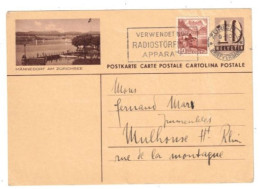 VERWENDET
RADIOSTÖR
APPARA
HELVETIA
POSTKARTE CARTE POSTALE CARTOLINA POSTALE
Mons
Fernand Marx
Immeubles
Mulhouse Ht Rhin
rue de la montagne